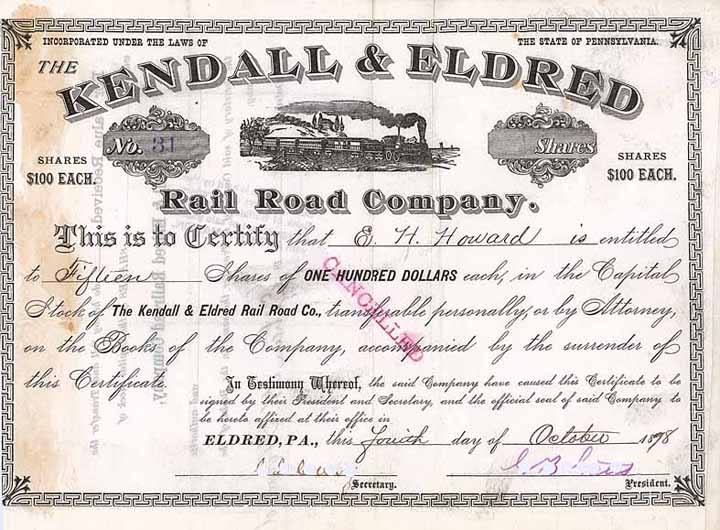 INCORPORATED UNDER THE LAWS OF THE STATE OF PENNSYLVANIA.
THE KENDALL & ELDRED
No. 31 Shares
SHARES $100 EACH. SHARES $100 EACH.
Rail Road Company.
This is to Certify that E. H. Howard is entitled
to Fifteen Shares of ONE HUNDRED DOLLARS each, in the Capital
Stock of The Kendall & Eldred Rail Road Co., transferable personally, or by Attorney,
on the Books of the Company, accompanied by the surrender of
this Certificate.
CANCELLED
In Testimony Whereof, the said Company have caused this Certificate to be
signed by their President and Secretary, and the official seal of said Company to
be hereto affixed at their office in
ELDRED, PA., this Fourth day of October 1898
Secretary. President.